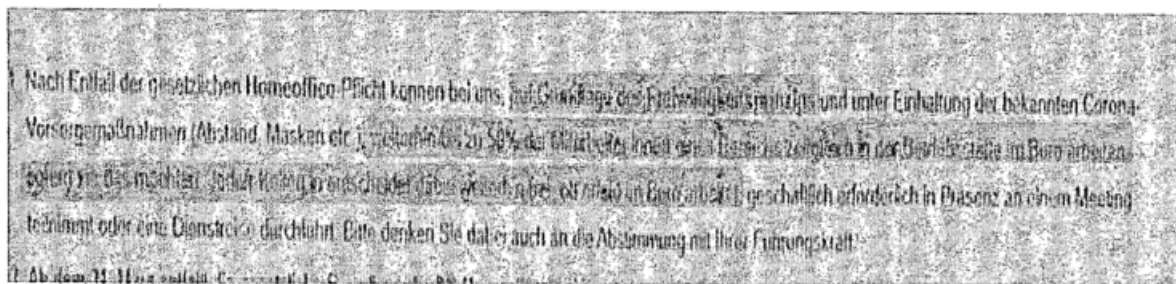 1. Nach Entfall der gesetzlichen Homeoffice-Pflicht können bei uns, auf Grundlage des Freiwilligkeitsprinzips und unter Einhaltung der bekannten Corona-
Vorsorgemaßnahmen (Abstand, Masken etc.), weiterhin bis zu 50% der Mitarbeiter:innen eines Bereichs zeitgleich in der Betriebsstelle im Büro arbeiten,
sofern sie das möchten. Jede:r Kolleg:in entscheidet dabei weiterhin frei, ob er/sie im Büro arbeitet, geschäftlich erforderlich in Präsenz an einem Meeting
teilnimmt oder eine Dienstreise durchführt. Bitte denken Sie dabei auch an die Abstimmung mit Ihrer Führungskraft.
2. Ab dem